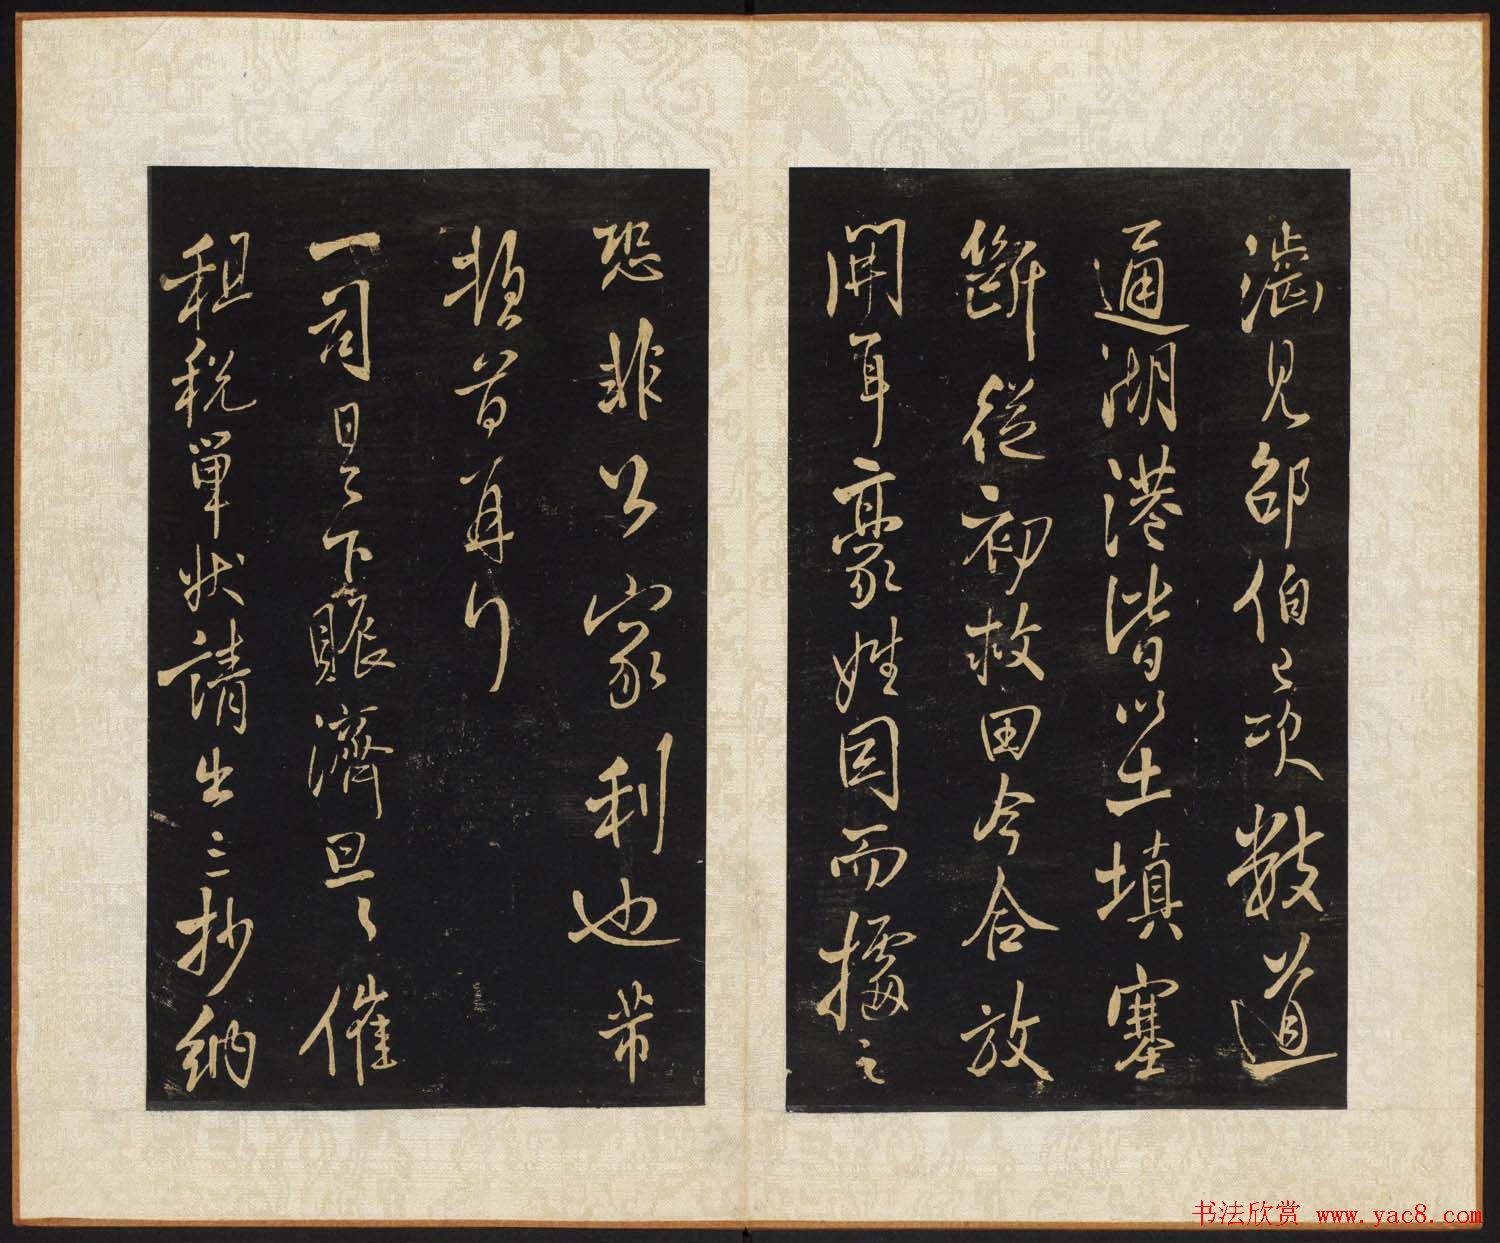 澁見邵伯已次數道
通湖港皆以土填塞
斷從初救田今合放
開耳豪姓因而據之
恐非公家利也芾
頓首再行
一司日々下賑濟旦々催
租稅單狀請出三抄納
书法欣赏 www.yac8.com